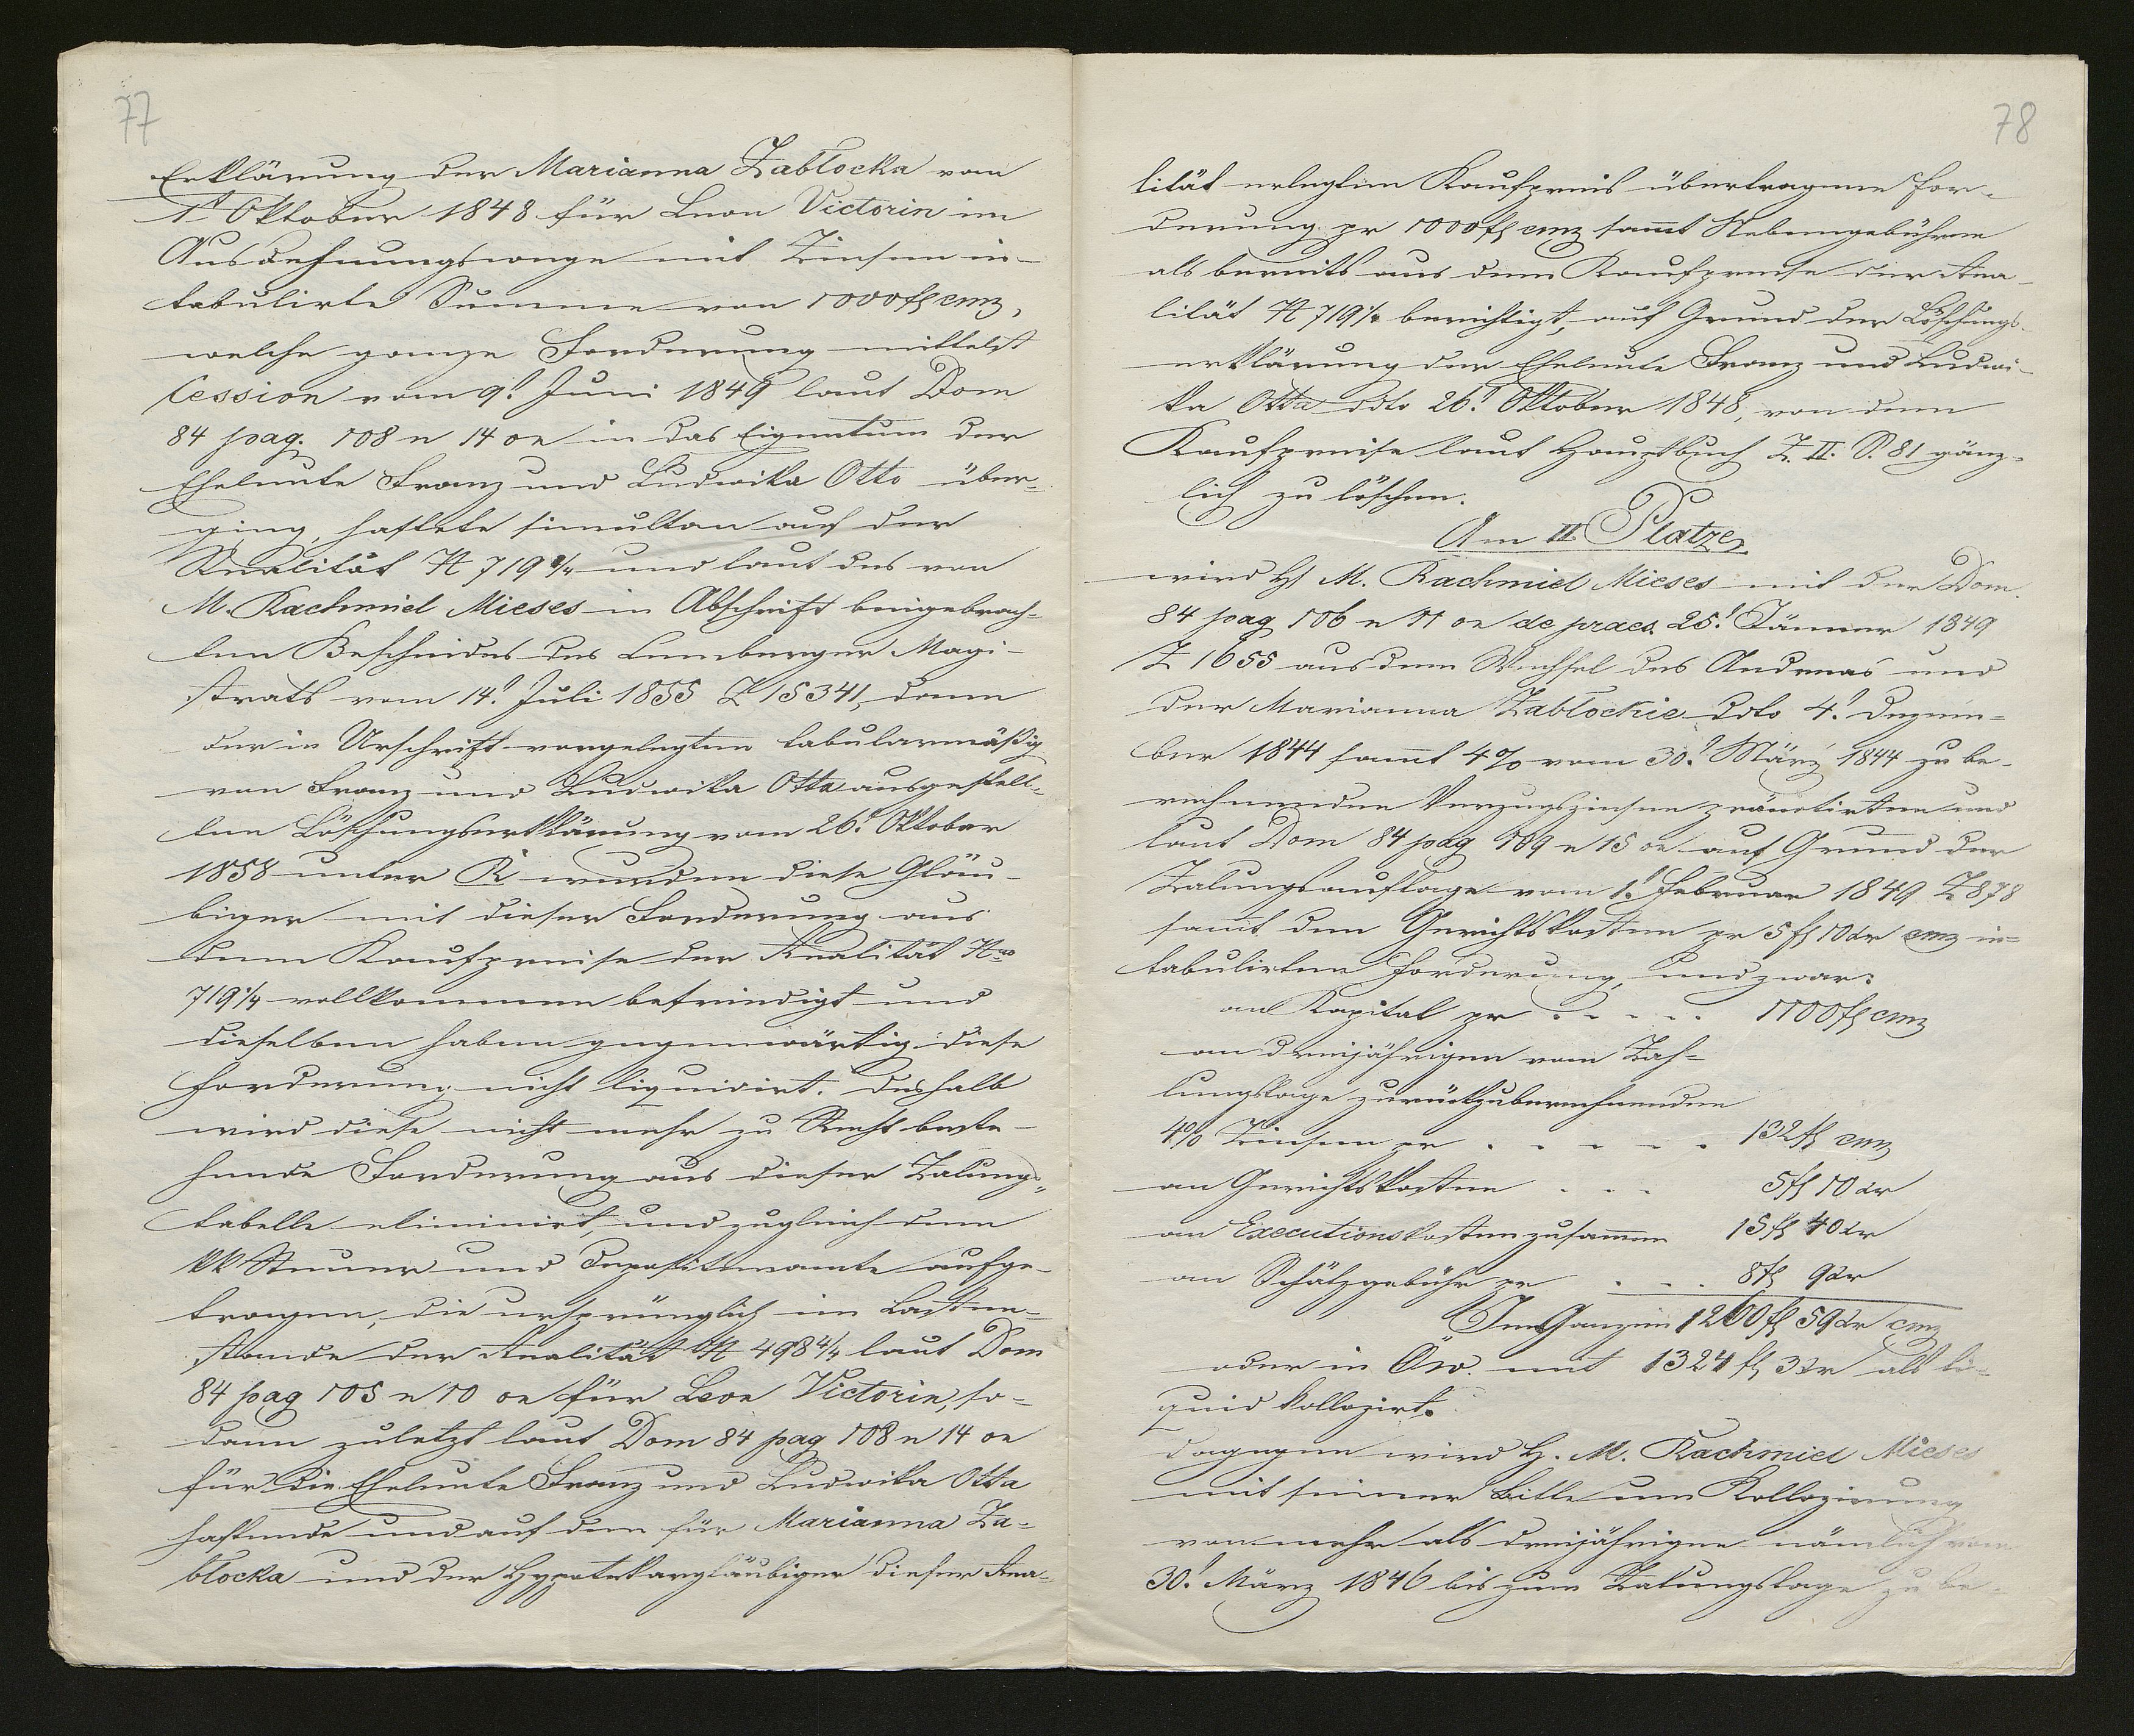 77
Erklärung der Marianna Zabłocka vom
1t Oktober 1848 für Leon Victorin im
Ausdehnungswege mit Zinsen in-
tabulirte Summe von 1000 fl cmz,
welche ganze Forderung mittelst
Cession vom 9t Juni 1849 laut Dom
84 pag. 108 n 14 on in das Eigentum der
Eheleute Franz und Ludwika Otto über-
ging, haftete simultan auf der
Realität N 719 2/4 und laut des von
M. Rachmiel Mieses in Abschrift beigebrach-
ten Bescheides des Lemberger Magi-
strats vom 14t Juli 1855 Z 15341, dann
der in Urschrift vorgelegten tabularmäßig
von Franz und Ludwika Otta ausgestell-
ten Löschungserklärung vom 26t Oktober
1858 unter R wurden diese Gläu-
biger mit dieser Forderung aus
dem Kaufpreise der Realität Nro
719 1/4 vollkommen befriedigt und
dieselben haben gegenwärtig diese
Forderung nicht liquidirt. Deshalb
wird diese nicht mehr zu Recht beste-
hende Forderung aus dieser Zalungs-
tabelle eliminirt, und zugleich dem
kk Steuer und Depositenamte aufge-
tragen, die ursprünglich im Lasten-
stande der Realität N 498 4/4 laut Dom
84 pag 105 n 10 on für Leon Victorin, so-
dann zuletzt laut Dom 84 pag 108 n 14 on
für die Eheleute Franz und Ludwika Otta
haftende und auf den für Marianna Za-
błocka und der Hypotekargläubiger dieser Rea-
78
lität erlegten Kaufpreis übertragene For-
derung pr 1000 fl cmz sammt Nebengebühren
als bereits aus dem Kaufpreise der Rea-
lität N 719 1/4 berichtigt, auf Grund der Löschungs-
erklärung der Eheleute Franz und Ludwi-
ka Otta ddto 26t Oktober 1848, von dem
Kaufpreise laut Hauptbuch Z. II. S. 81 gänz-
lich zu löschen.
Am II. Platze
wird H M. Rachmiel Mieses mit der Dom.
84 pag 106 n 11 on de praes. 25t Jänner 1849
Z 1655 aus dem Wechsel des Andreas und
der Marianna Zabłockie ddto 4t Dezem-
ber 1844 sammt 4% vom 30t März 1844 zu be-
rechnenden Verzugszinsen pränotirten und
laut Dom 84 pag 109 n 15 on auf Grund der
Zalungsauflage vom 1t Februar 1849 Z 878
sammt den Gerichtskosten pr 5 fl 10 xr cmz in-
tabulirten Forderung, und zwar:
an Kapital pr . . . . . 1100 fl cmz
an dreijährigen vom Zah-
lungstage zurückzuberechnenden
4% Zinsen pr . . . . . 132 fl cmz
an Gerichtskosten . . . 5 fl 10 xr
an Executionskosten zusammen 15 fl 40 xr
an Schätzgebühr pr . . . 8 fl 9 xr
Im Ganzen 1260 fl 59 xr cmz
oder in Öw. mit 1324 fl 3 xr als li-
quid kollozirt.
Dagegen wird H. M. Rachmiel Mieses
mit seiner Bitte um Kollozirung
von mehr als dreijährigen nämlich vom
30t März 1846 bis zum Zalungstage zu be-